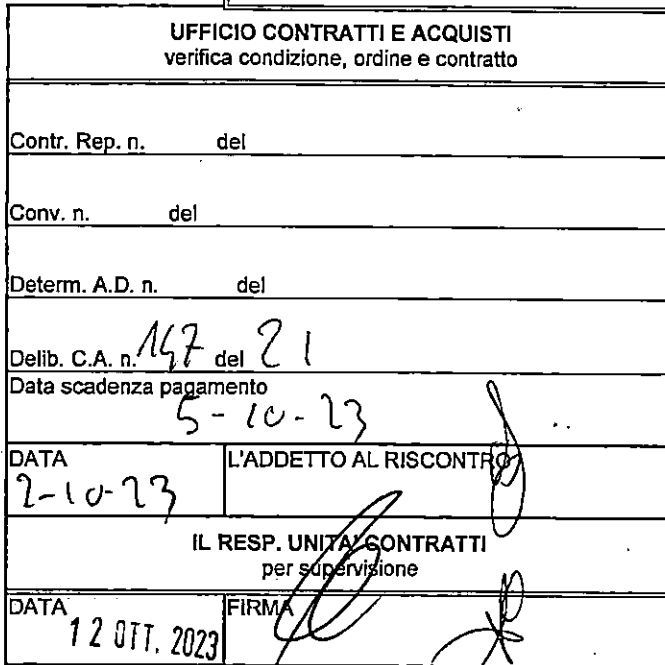 UFFICIO CONTRATTI E ACQUISTI
verifica condizione, ordine e contratto
Contr. Rep. n. del
Conv. n. del
Determ. A.D. n. del
Delib. C.A. n. 147 del 21
Data scadenza pagamento
5-10-23
DATA L'ADDETTO AL RISCONTRO
2-10-23
IL RESP. UNITA' CONTRATTI
per supervisione
DATA FIRMA
12 OTT. 2023